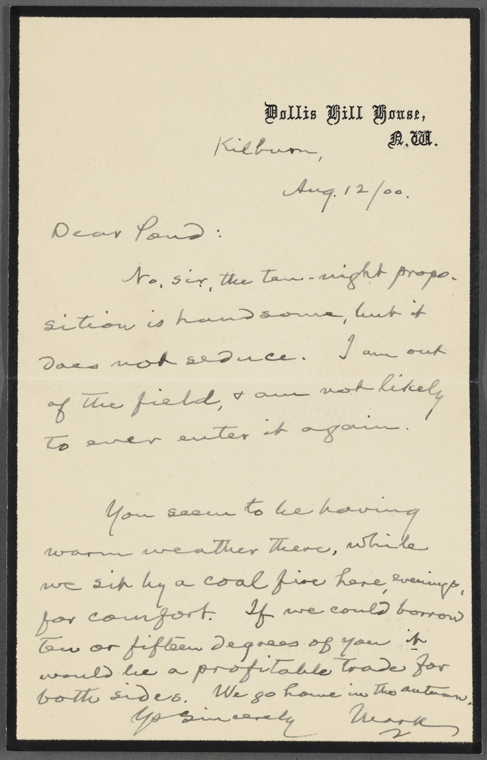 Dollis Hill House,
N.W.
Kilburn,
Aug. 12/00.
Dear Pond:
No, sir, the ten-night propo-
sition is handsome, but it
does not seduce. I am out
of the field, & am not likely
to ever enter it again.
You seem to be having
warm weather there, while
we sit by a coal fire here, evenings,
for comfort. If we could borrow
ten or fifteen degrees of you it
would be a profitable trade for
both sides. We go home in the autumn.
Ys Sincerely Mark